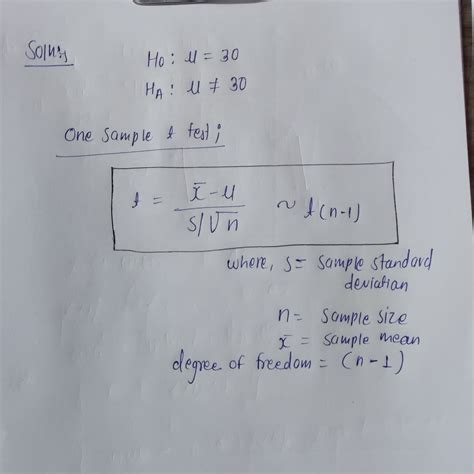 Soln:
H0 : μ = 30
HA : μ ≠ 30
One sample t test;
t = x̄-μ / s/√n ~ t(n-1)
where, s = sample standard
deviation
n = sample size
x̄ = sample mean
degree of freedom = (n-1)